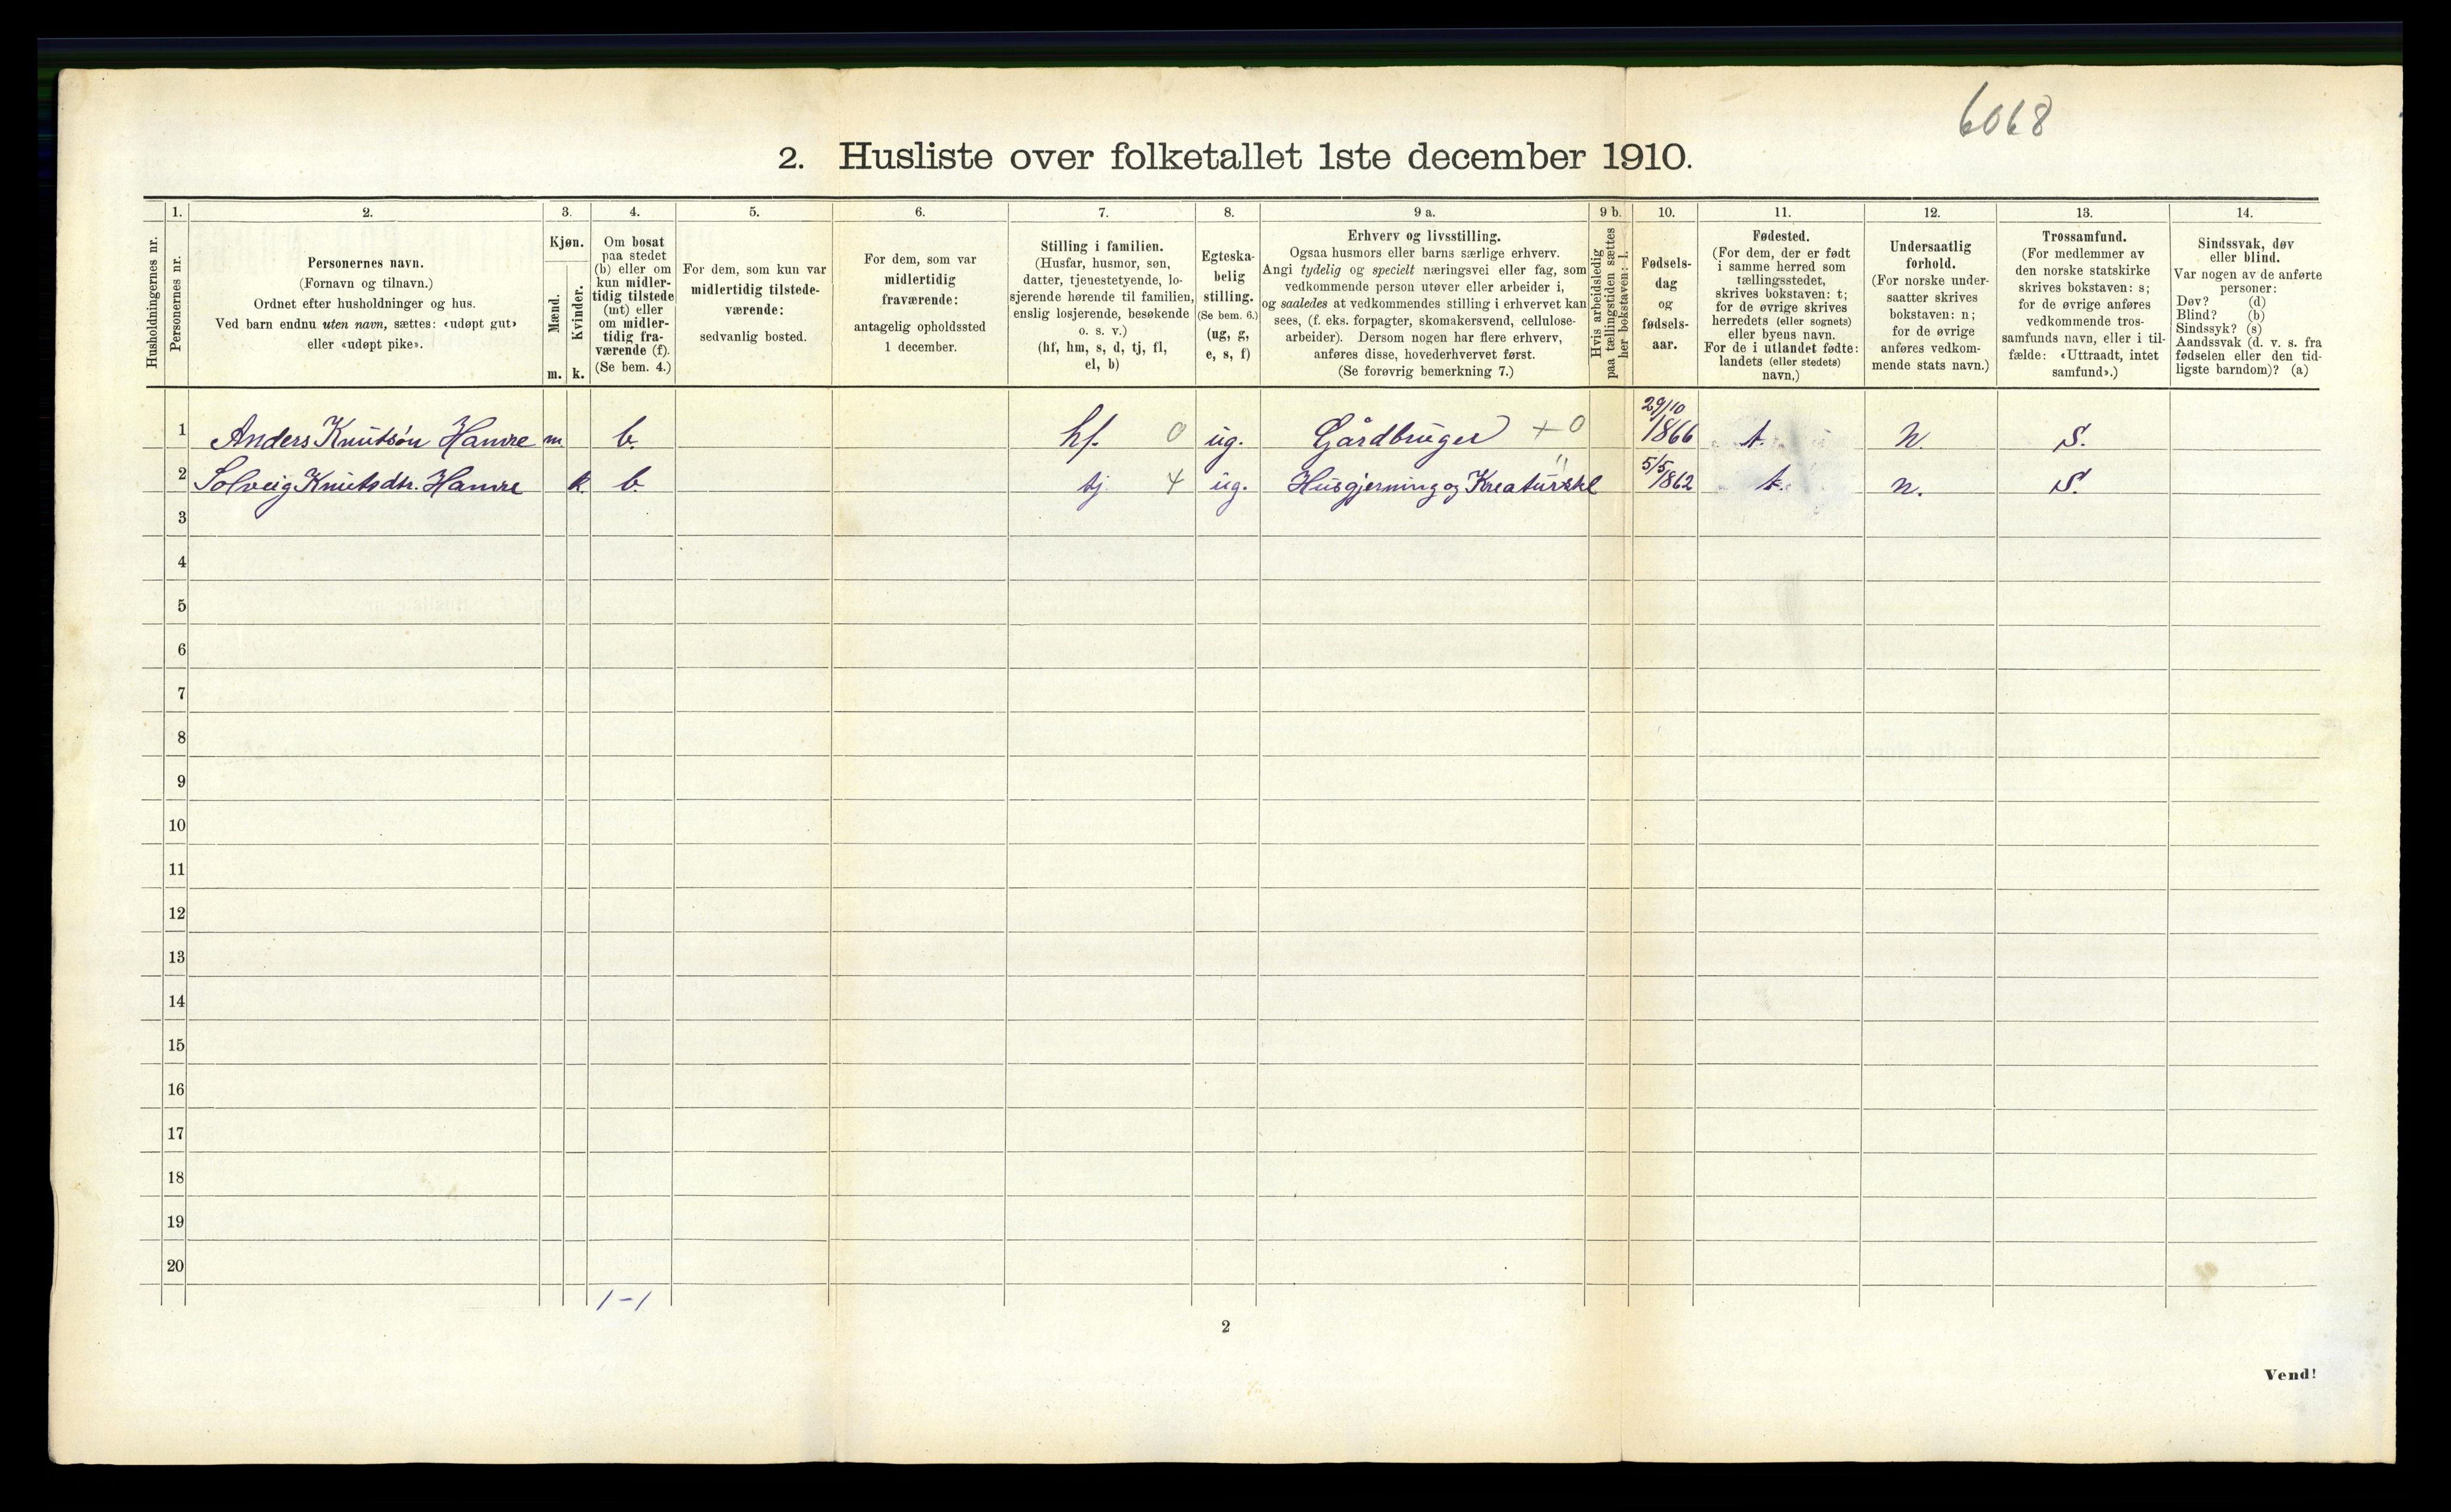 6068
2. Husliste over folketallet 1ste december 1910.
Husholdningernes nr.
1.
Personernes nr.
2.
Personernes navn.
(Fornavn og tilnavn.)
Ordnet efter husholdninger og hus.
Ved barn endnu uten navn, sættes: «udøpt gut»
eller «udøpt pike».
3.
Kjøn.
Mænd.
Kvinder.
m. k.
4.
Om bosat
paa stedet
(b) eller om
kun midler-
tidig tilstede
(mt) eller
om midler-
tidig fra-
værende (f).
(Se bem. 4.)
5.
For dem, som kun var
midlertidig tilstede-
værende:
sedvanlig bosted.
6.
For dem, som var
midlertidig
fraværende:
antagelig opholdssted
1 december.
7.
Stilling i familien.
(Husfar, husmor, søn,
datter, tjenestetyende, lo-
sjerende hørende til familien,
enslig losjerende, besøkende
o. s. v.)
(hf, hm, s, d, tj, fl,
el, b)
8.
Egteska-
belig
stilling.
(Se bem. 6.)
(ug, g,
e, s, f)
9 a.
Erhverv og livsstilling.
Ogsaa husmors eller barns særlige erhverv.
Angi tydelig og specielt næringsvei eller fag, som
vedkommende person utøver eller arbeider i,
og saaledes at vedkommendes stilling i erhvervet kan
sees, (f. eks. forpagter, skomakersvend, cellulose-
arbeider). Dersom nogen har flere erhverv,
anføres disse, hovederhvervet først.
(Se forøvrig bemerkning 7.)
9 b.
Hvis arbeidsledig
paa tællingstiden sættes
her bokstaven: l.
10.
Fødsels-
dag
og
fødsels-
aar.
11.
Fødested.
(For dem, der er født
i samme herred som
tællingsstedet,
skrives bokstaven: t;
for de øvrige skrives
herredets (eller sognets)
eller byens navn.
For de i utlandet fødte:
landets (eller stedets)
navn.)
12.
Undersaatlig
forhold.
(For norske under-
saatter skrives
bokstaven: n;
for de øvrige
anføres vedkom-
mende stats navn.)
13.
Trossamfund.
(For medlemmer av
den norske statskirke
skrives bokstaven: s;
for de øvrige anføres
vedkommende tros-
samfunds navn, eller i til-
fælde: «Uttraadt, intet
samfund».)
14.
Sindssvak, døv
eller blind.
Var nogen av de anførte
personer:
Døv? (d)
Blind? (b)
Sindssyk? (s)
Aandssvak (d. v. s. fra
fødselen eller den tid-
ligste barndom)? (a)
1 Anders Knutsøn Hamre m b. hf. 0 ug. Gårdbruger + 0 29/10 1866 t. n. S.
2 Solveig Knutsdtr. Hamre k. b. tj 4 ug. Husgjerning og Kreaturstel 5/5 1862 t. n. S.
3
4
5
6
7
8
9
10
11
12
13
14
15
16
17
18
19
20
1 - 1
2
Vend!